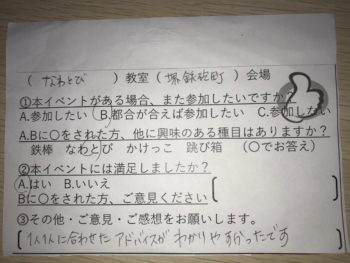 ( なわとび ) 教室 ( 堺鉄砲町 ) 会場
①本イベントがある場合、また参加したいですか?
A.参加したい B.都合が合えば参加したい C.参加しない
A.Bに〇をされた方、他に興味のある種目はありますか?
鉄棒 なわとび かけっこ 跳び箱 (〇でお答え)
②本イベントには満足しましたか?
A.はい B.いいえ
Bに〇をされた方、ご意見ください
③その他・ご意見・ご感想をお願いします。
1人1人に合わせたアドバイスがわかりやすかったです